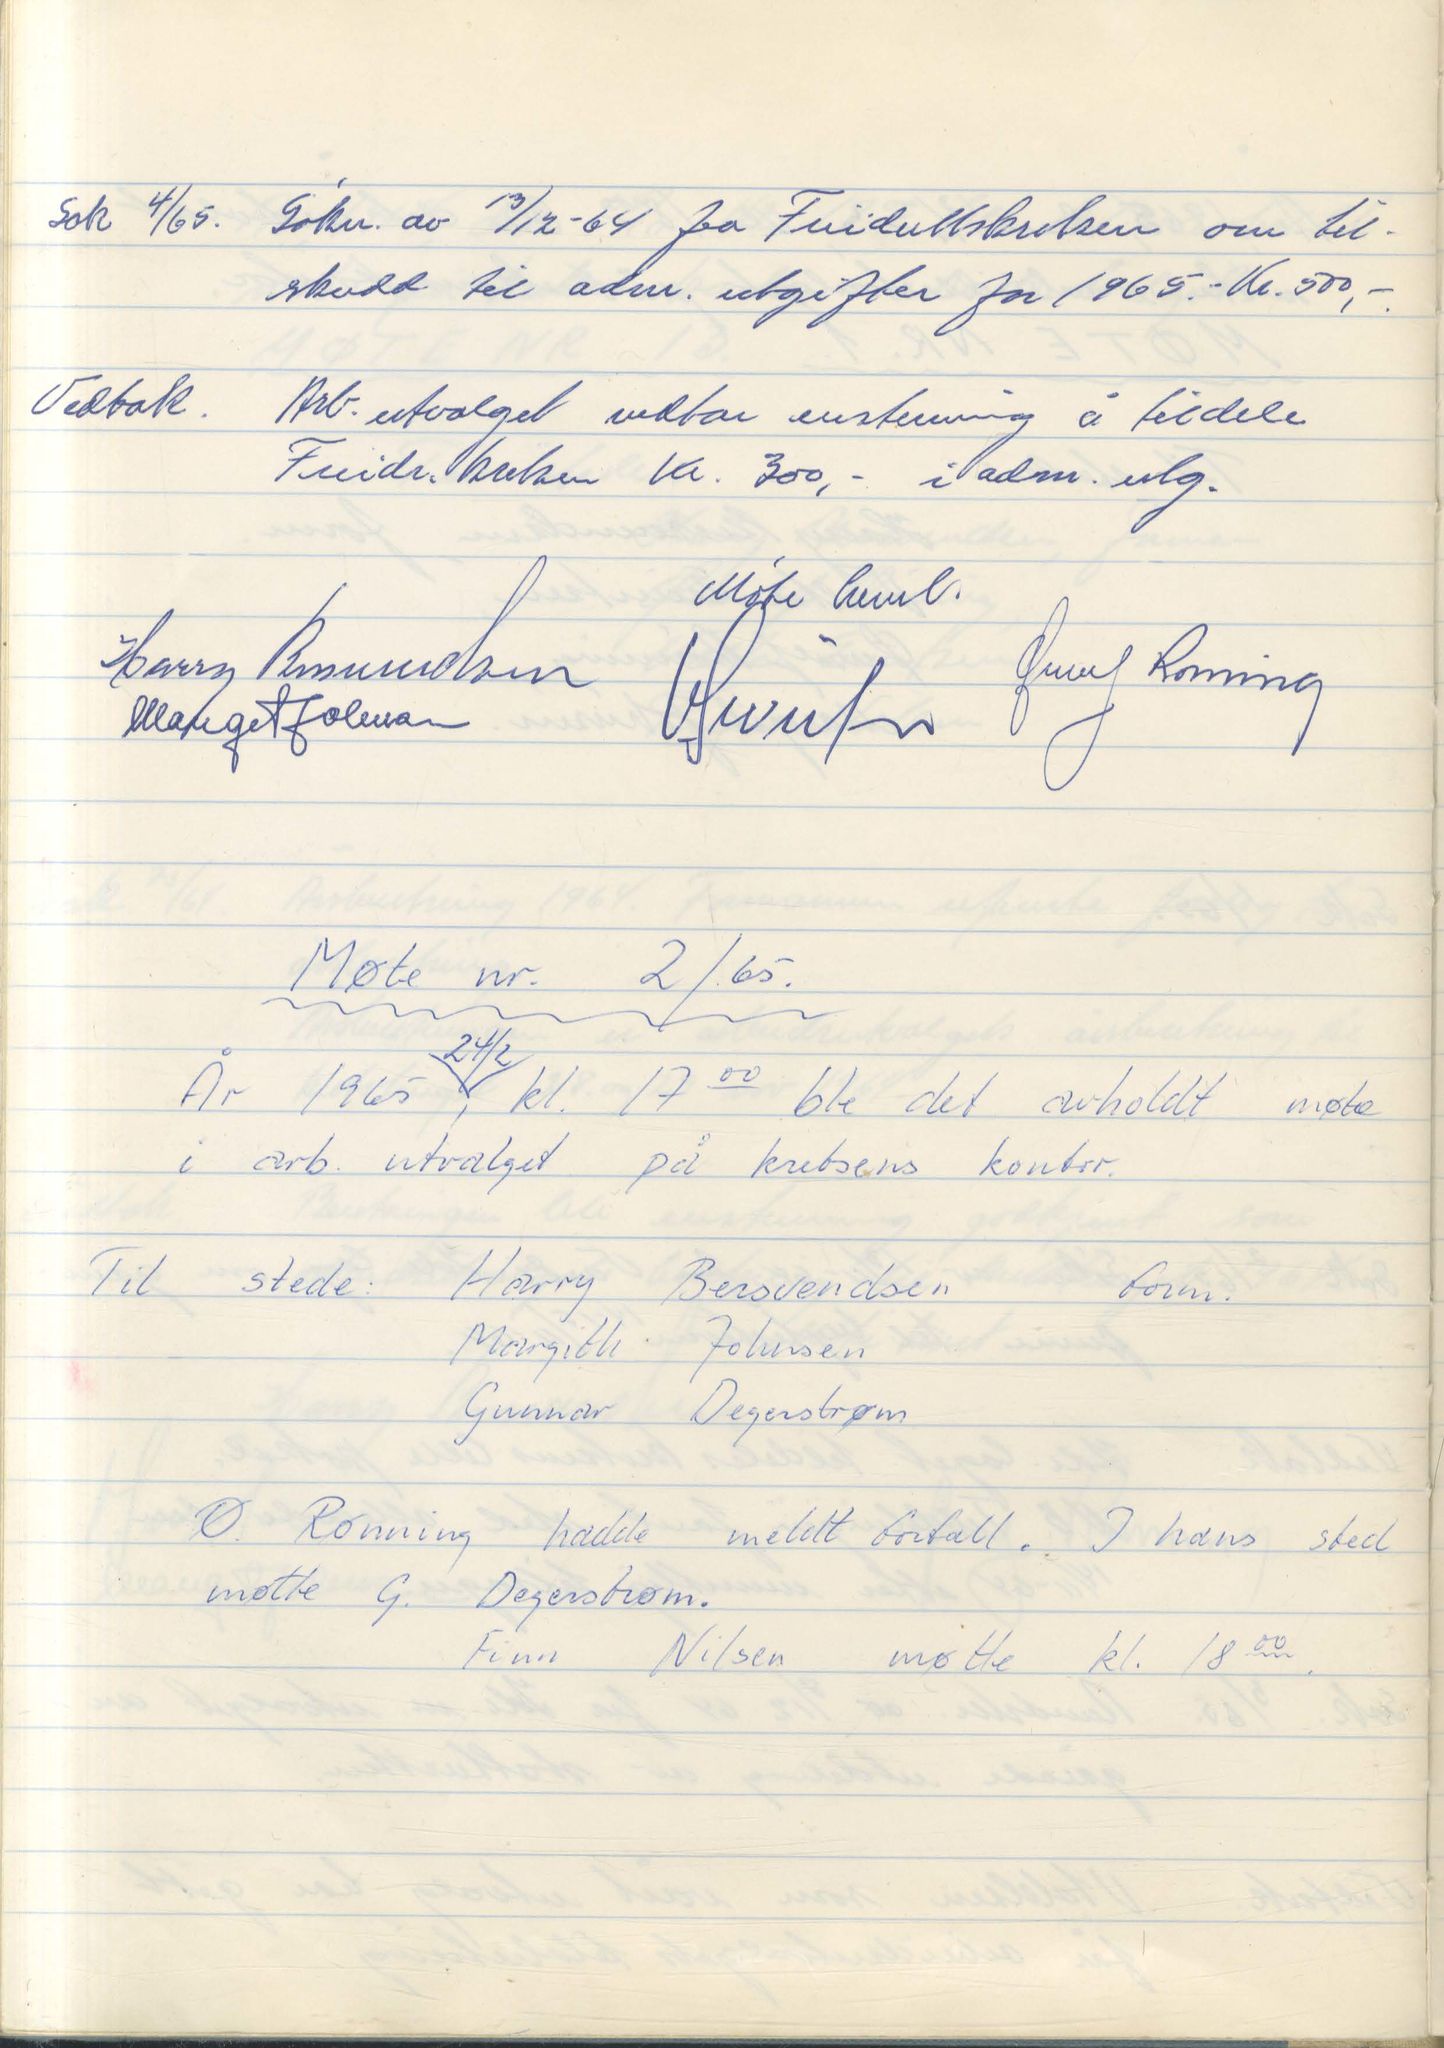 Sak 4/65. Søkn. av 13/12-64 fra Friidrettskretsen om til-
skudd til adm. utgifter for 1965.- Kr. 500,-.
Vedtak. Arb. utvalget vedtar enstemmig å tildele
Friidr. kretsen Kr. 300,- i adm. utg.
Møte hevet.
Harry
Rønning
Møte nr. 2/65.
24/2
År 1965, kl. 17 00 ble det avholdt møte
i arb. utvalget på kretsens kontor.
Til stede: Harry Bersvendsen form.
Margith Johnsen
Gunnar Degerstrøm
Ø. Rønning hadde meldt forfall. I hans sted
møtte G. Degerstrøm.
Finn Nilsen møtte kl. 18 00.